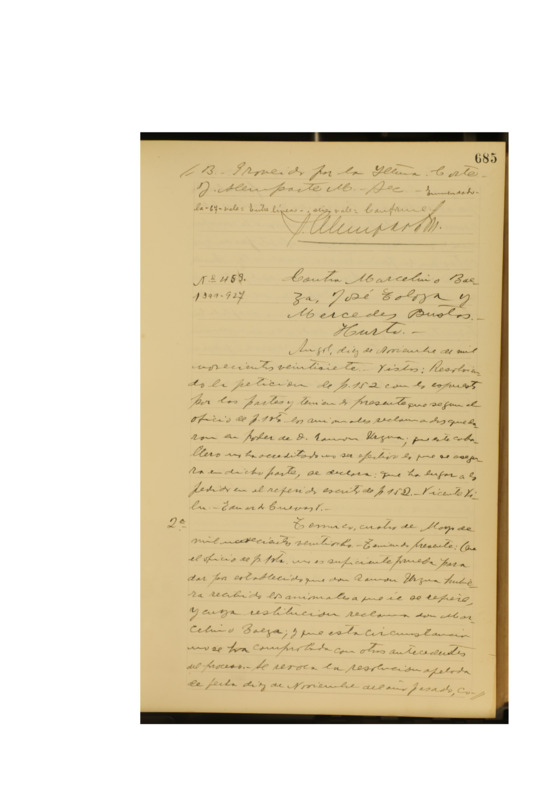 685
B. Proveido por la Iltma. Corte.
J. Alemparte M. Sec
Nº 1153.
1301-927
Contra Marcelino Bae
za, José Toloza y
Mercedes Bustos.-
Hurto.-
Angol, diez de Noviembre de mil
novecientos veintisiete.- Vistos: Resolvien
do la peticion de f. 152 con lo espuesto
por las partes y teniendo presente que segun el
oficio de f. los animales reclamados queda
ron en poder de D. Ramon Urzua; que este caba
llero no ha acreditado no ser efectivo lo que se asegu
ra en dicho parte, se declara: que ha lugar a lo
pedido en el referido escrito de f. 152.- Vicente Vi
2ª
Temuco, cuatro de Mayo de
mil novecientos veintiocho.- Teniendo presente: Que
el oficio de f. no es suficiente prueba para
dar por establecido que don Ramon Urzua hubie
ra recibido los animales a que él se refiere,
y cuya restitucion reclama don Mar
celino Baeza; y que esta circunstancia
no se ha comprobada con otros antecedentes
del proceso.- Se revoca la resolucion apelada
de fecha diez de Noviembre del año pasado,